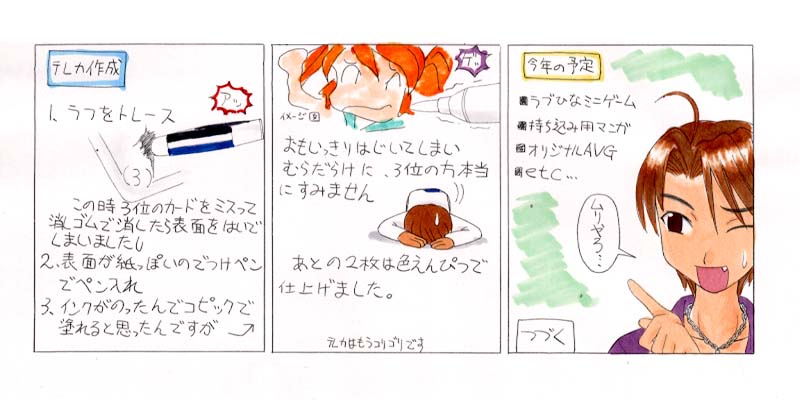 テレカ作成
アッ
1、ラフをトレース
(3)
この時3位のカードをミスって
消しゴムで消したら表面をはいで
しまいました
2、表面が紙っぽいのでつけペン
でペン入れ
3、インクがのったんでコピックで
塗れると思ったんですが
ゲッ
イメージ図
おもいっきりはじいてしまい
むらだらけに、3位の方本当
にすみません
あとの2枚は色えんぴつで
仕上げました。
テレカはもうコリゴリです
今年の予定
ラブひなミニゲーム
持ち込み用マンガ
オリジナルAVG
etc...
ムリやろ…
つづく